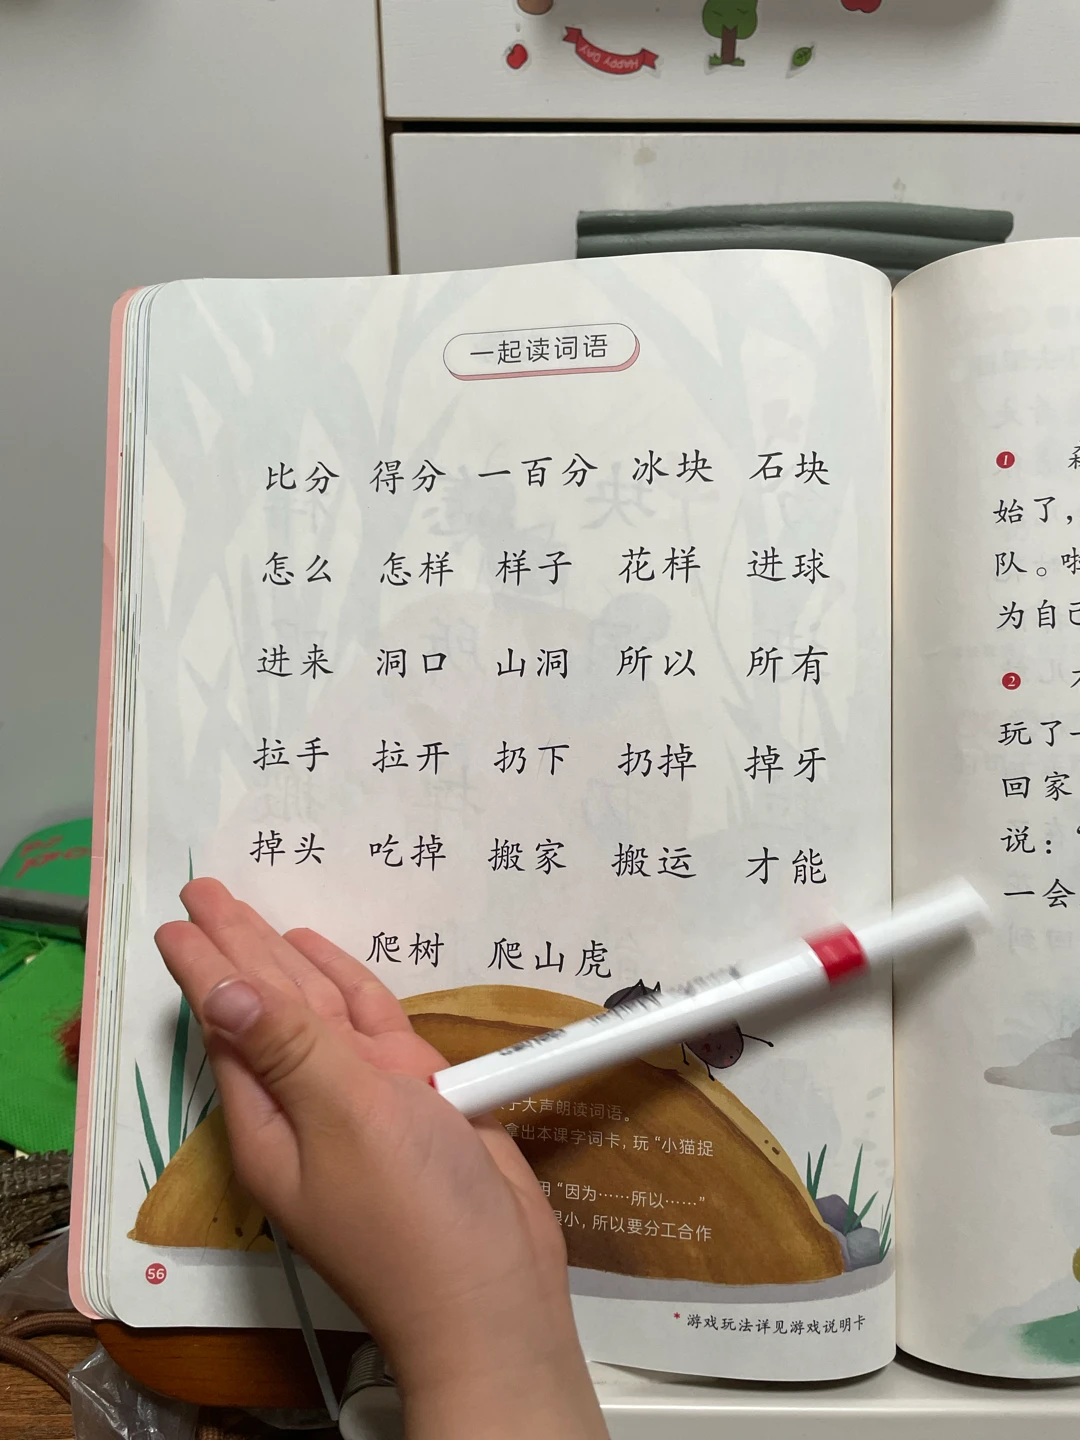 HAPPY DAY
一起读词语
比分 得分 一百分 冰块 石块
怎么 怎样 样子 花样 进球
进来 洞口 山洞 所以 所有
拉手 拉开 扔下 扔掉 掉牙
掉头 吃掉 搬家 搬运 才能
爬树 爬山虎
大声朗读词语。
拿出本课字词卡，玩“小猫捉
用“因为……所以……”
很小，所以要分工合作
56
*游戏玩法详见游戏说明卡
1
始了，
队。啦
为自己
2
玩了一
回家
说：“
一会